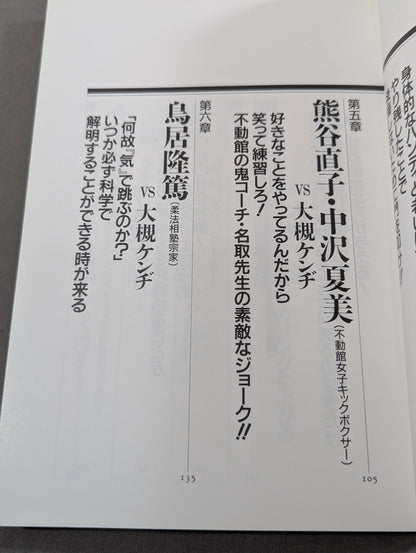 身体的なハンディ
やり残したことで
第五章
熊谷直子・中沢夏美(不動館女子キックボクサー)
vs 大槻ケンヂ
好きなことをやってるんだから
笑って練習しろ!
不動館の鬼コーチ・名取先生の素敵なジョーク!!
105
第六章
鳥居隆篤(柔法相塾宗家)
vs 大槻ケンヂ
「何故『気』で跳ぶのか?」
いつか必ず科学で
解明することができる時が来る
135